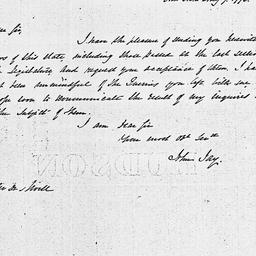 Sir,
I have the pleasure of sending you herewith
of this State, including those passed at the last session
Legislature, and request your acceptance of them. I have
been unmindful of the Queries you left with me
soon to communicate the result of my inquiries
the Subject of them.
I am dear Sir
Your most obt Servt
John Jay.